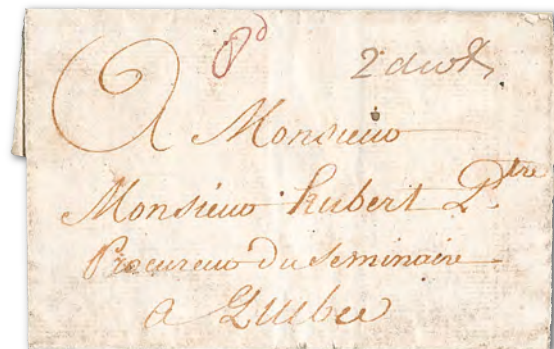 8d 2 dwt
A Monsieur
Monsieur hubert Ptre
Procureur Du Seminaire
a Quebec